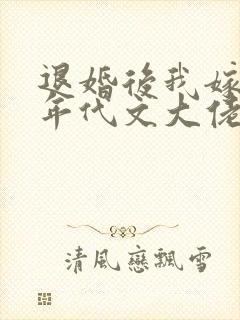 退婚後我嫁
年代文大佬
清風戀飄雪